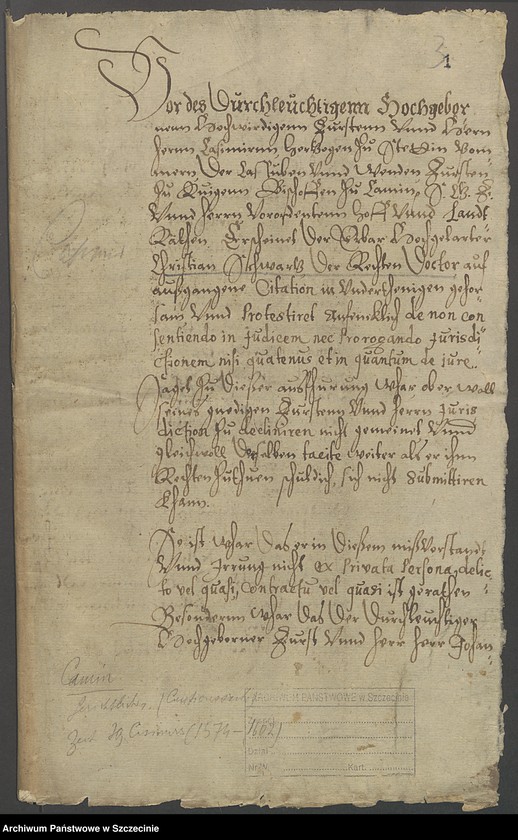 3 1
Vor des Durchleuchtigenn Hochgebor
nenn Hochwirdigenn Fursten Vnnd Hern
Herrn Casimirenn Hertzogen zu Stettin Pom
mern, Der Cassuben Vnnd Wenden Fursten
zu Ruigenn Bischoffen zu Camin,
Vnnd Herrn Verordentenn Hoff Vnnd Landt
Rathen, Erscheinet Der Erbar Hochgelarter
Christian Schwartz Der Rechten Doctor auf
außgangene Citation in Vnderthenigen gehor
sam Vnnd Protestiret Anfencklich de non con
sentiendo in Judicem nec Prorogando Jurisdi
ctionem nisi quatenus et in quantum de jure
Saget zu Dießer außfhurung Whar ob er woll
seines gnedigen Furstenn Vnnd Herrn Juris
diction zu decliniren nicht gemeint Vnnd
gleichwoll Derselben tacite weiter als er ihm
Rechten zuthuen schuldich, sich nicht Submittiren
khann.
So ist Whar das er in Dießem mißVorstandt
Vnnd Irrung nicht ex Privata Persona, delic
to vel quasi, Contractu vel quasi ist gerathen
Besonderrn Whar das der Durchleuchtiger
Hochgeborner Furst Vnnd Herr Herr Johan
Camin
Zeit Hz. Casimirs (1574-1602)
ARCHIWUM PAŃSTWOWE w Szczecinie
Dział
Nr
Kart.
Archiwum Państwowe w Szczecinie